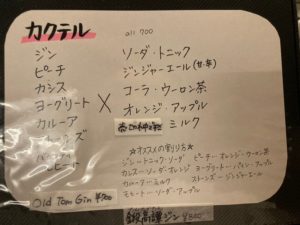 カクテル all 700
ジン ソーダ・トニック
ピーチ ジンジャーエール(甘・辛)
カシス × コーラ・ウーロン茶
ヨーグリート オレンジ・アップル
カルーア ミルク
☆オススメの割り方☆
ジン―トニック・ソーダ ピーチ―オレンジ・ウーロン茶
カシス―ソーダ・オレンジ ヨーグリート―オレンジ・アップル
カルーア―ミルク ストーンズ―ジンジャエール
モヒート―ソーダ・アップル
Old Tom Gin ¥700
ジン ¥800